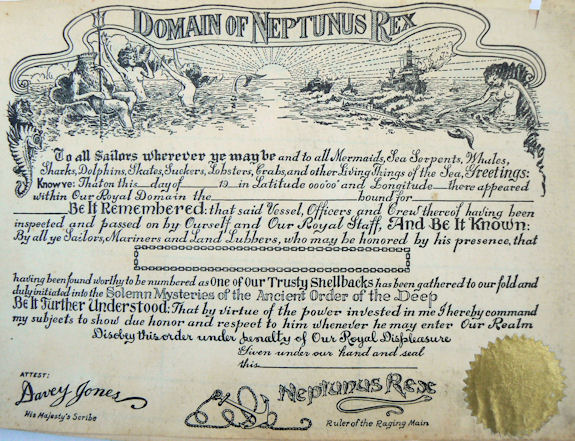 DOMAIN OF NEPTUNUS REX
To all Sailors wherever ye may be and to all Mermaids, Sea Serpents, Whales,
Sharks, Dolphins, Skates, Suckers, Lobsters, Crabs, and other Living Things of the Sea, Greetings:
Know ye: That on this ___ day of ___ 19__ in Latitude 00000' and Longitude ___ there appeared
within Our Royal Domain the ___ bound for ___
Be It Remembered: that said Vessel, Officers and Crew thereof having been
inspected and passed on by Ourself and Our Royal Staff, And Be It Known:
By all ye Sailors, Mariners and Land Lubbers, who may be honored by his presence, that
having been found worthy to be numbered as One of Our Trusty Shellbacks has been gathered to our fold and
duly initiated into the Solemn Mysteries of the Ancient Order of the Deep
Be It Further Understood: That by virtue of the power invested in me I hereby command
my subjects to show due honor and respect to him whenever he may enter Our Realm
Disobey this order under penalty of Our Royal Displeasure
Given under our hand and seal
this ___
ATTEST:
Davey Jones
His Majesty's Scribe
Neptunus Rex
Ruler of the Raging Main